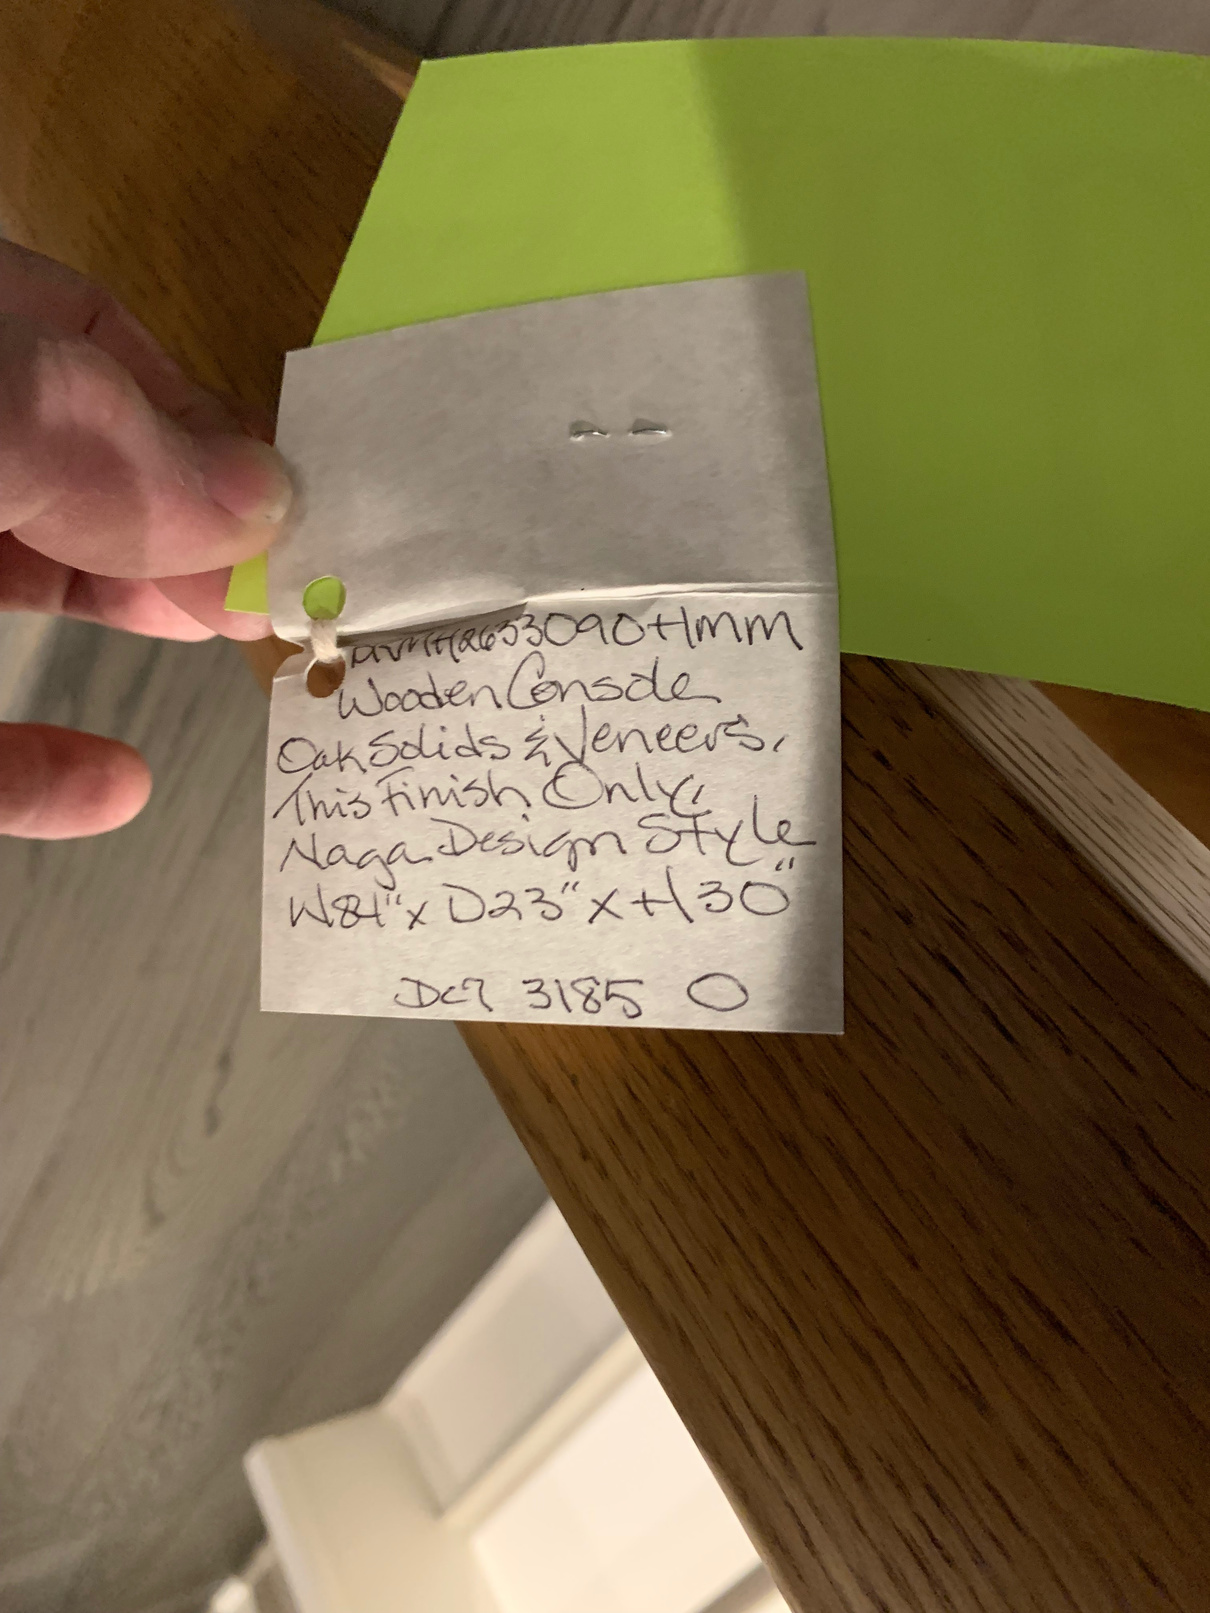 2633090HMM
Wooden Console
Oak Solids & Veneers,
This Finish Only,
Naga Design Style
W84"x D23" x H30"
3185 O